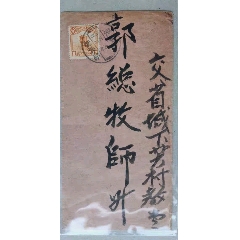 交省城下芝村教堂
郭總牧師升